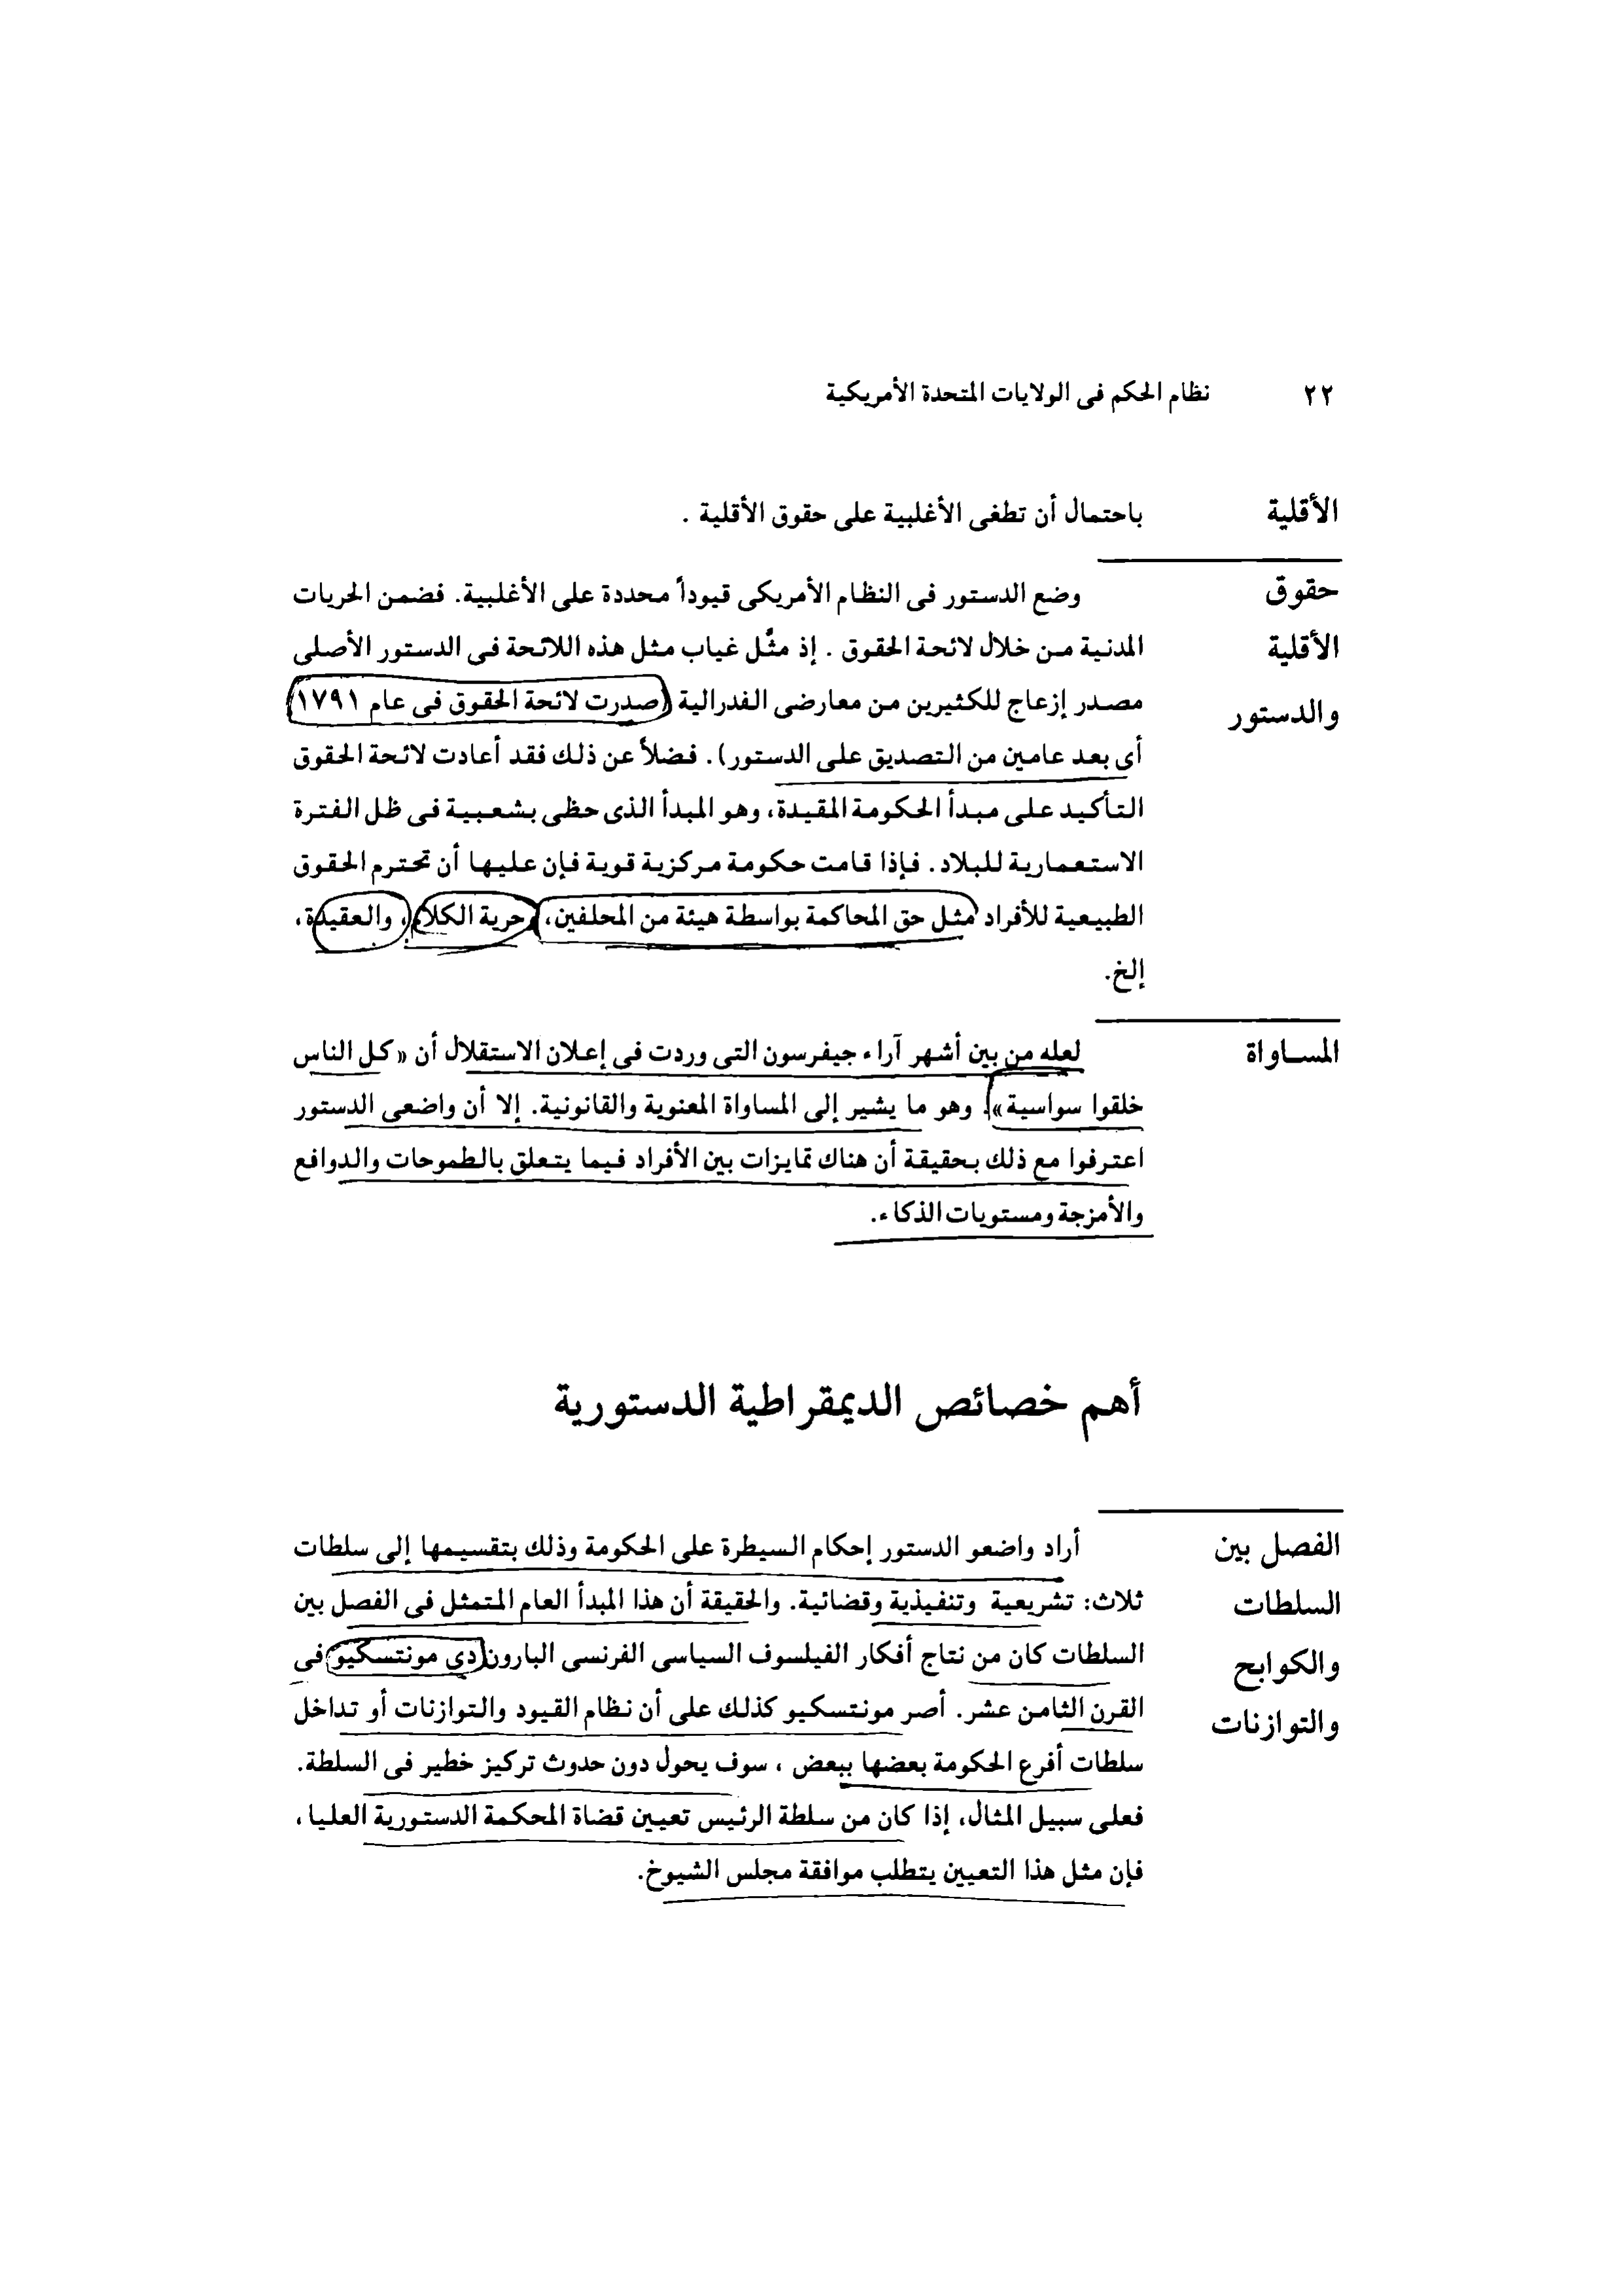 ٢٢ نظام الحكم فى الولايات المتحدة الأمريكية
الأقلية
باحتمال أن تطغى الأغلبية على حقوق الأقلية .
حقوق
الأقلية
والدستور
وضع الدستور فى النظام الأمريكى قيوداً محددة على الأغلبية. فضمن الحريات
المدنية من خلال لائحة الحقوق . إذ مثَّل غياب مثل هذه اللائحة فى الدستور الأصلى
مصدر إزعاج للكثيرين من معارضى الفدرالية (صدرت لائحة الحقوق فى عام ١٧٩١
أى بعد عامين من التصديق على الدستور). فضلاً عن ذلك فقد أعادت لائحة الحقوق
التأكيد على مبدأ الحكومة المقيدة، وهو المبدأ الذى حظى بشعبية فى ظل الفترة
الاستعمارية للبلاد. فإذا قامت حكومة مركزية قوية فإن عليها أن تحترم الحقوق
الطبيعية للأفراد مثل حق المحاكمة بواسطة هيئة من المحلفين، وحرية الكلام، والعقيدة،
إلخ.
المساواة
لعله من بين أشهر آراء جيفرسون التى وردت فى إعلان الاستقلال أن «كل الناس
خلقوا سواسية». وهو ما يشير إلى المساواة المعنوية والقانونية. إلا أن واضعى الدستور
اعترفوا مع ذلك بحقيقة أن هناك تمايزات بين الأفراد فيما يتعلق بالطموحات والدوافع
والأمزجة ومستويات الذكاء.
أهم خصائص الديمقراطية الدستورية
الفصل بين
السلطات
والكوابح
والتوازنات
أراد واضعو الدستور إحكام السيطرة على الحكومة وذلك بتقسيمها إلى سلطات
ثلاث: تشريعية وتنفيذية وقضائية. والحقيقة أن هذا المبدأ العام المتمثل فى الفصل بين
السلطات كان من نتاج أفكار الفيلسوف السياسى الفرنسى البارون دى مونتسكيو فى
القرن الثامن عشر. أصر مونتسكيو كذلك على أن نظام القيود والتوازنات أو تداخل
سلطات أفرع الحكومة بعضها ببعض ، سوف يحول دون حدوث تركيز خطير فى السلطة.
فعلى سبيل المثال، إذا كان من سلطة الرئيس تعيين قضاة المحكمة الدستورية العليا،
فإن مثل هذا التعيين يتطلب موافقة مجلس الشيوخ.